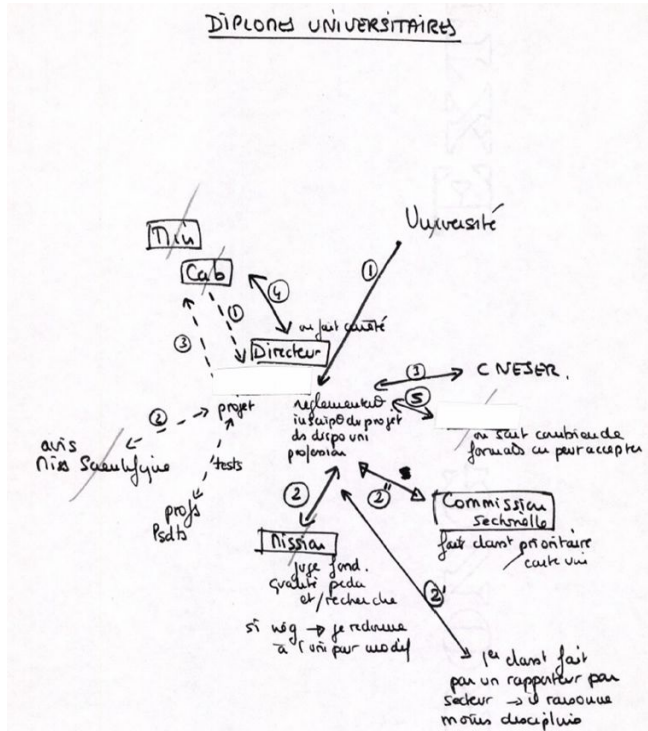 DIPLOMES UNIVERSITAIRES
Université
Min
Cab
①
④
①
③
on fait
Directeur
③
CNESER.
⑤
②
projet
inscip° du projet
ds dispo uni
profession
on sait combien de
formats on peut accepter
avis
Miss Scientifique
tests
profs
Psdts
②
②"
Commission
sectorielle
fait clasnt prioritaire
carte uni
Mission
juge fond.
qualité péda
et / recherche
si nég → je redonne
à l'uni pour modif
②'
1er clasnt fait
par un rapporteur par
secteur → il raisonne
moins